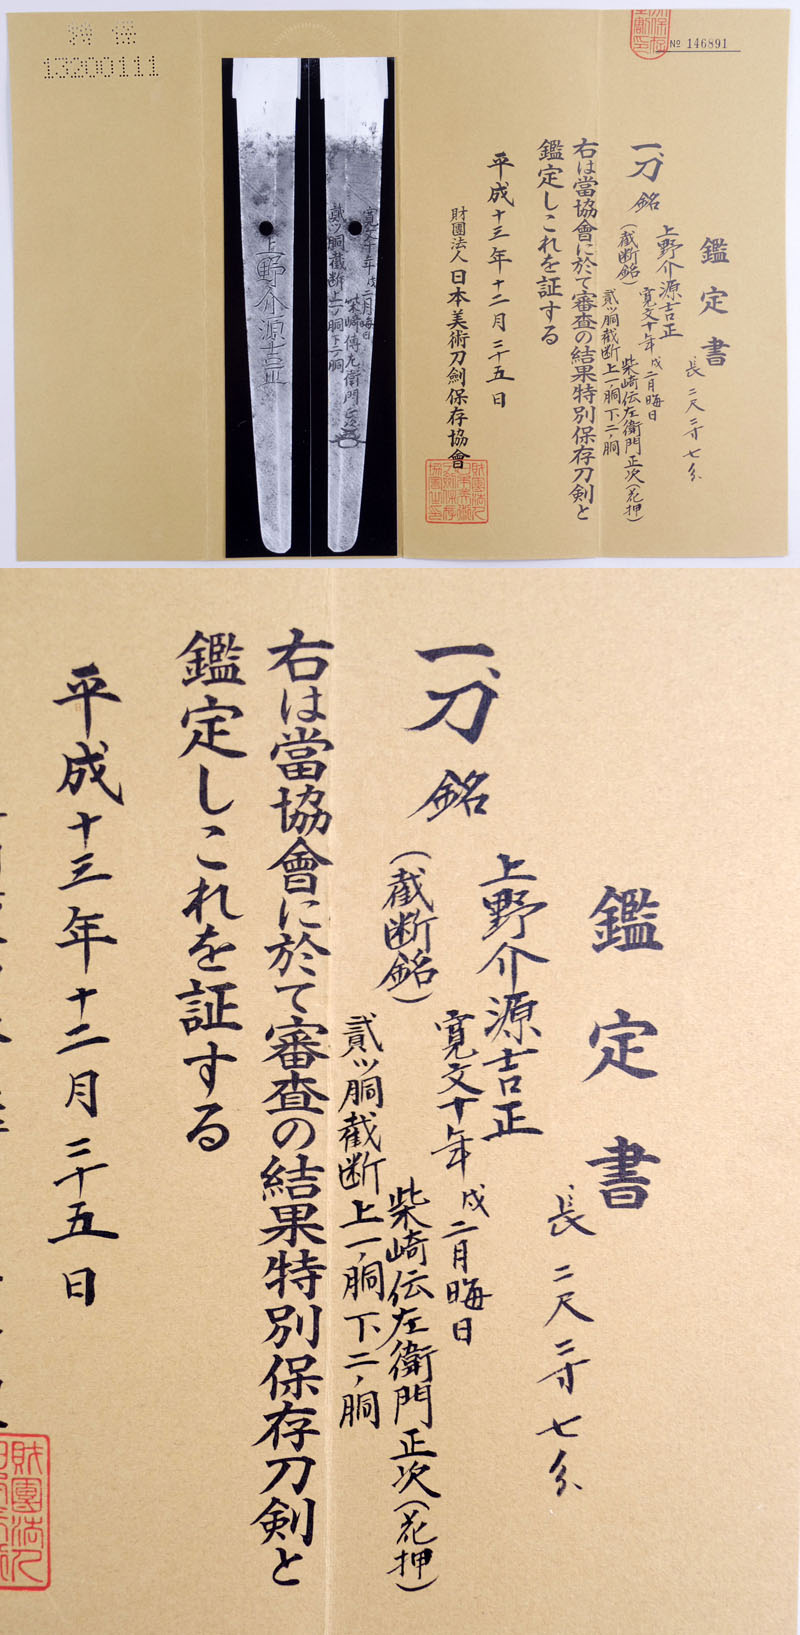 特保
13200111
№ 146891
鑑定書
長 二尺三寸七分
一、刀 銘 上野介源吉正
寛文十年戌二月晦日
(截断銘) 柴崎伝左衛門正次(花押)
貳ッ胴截断上一ノ胴下二ノ胴
右は當協會に於て審査の結果特別保存刀剣と
鑑定しこれを証する
平成十三年十二月二十五日
財團法人 日本美術刀劍保存協會
上野介源吉正
寛文十年戌二月晦日
柴崎傳左衛門正次
貳ッ胴截断上一ノ胴下二ノ胴
鑑定書
長 二尺三寸七分
一、刀 銘 上野介源吉正
寛文十年戌二月晦日
(截断銘) 柴崎伝左衛門正次(花押)
貳ッ胴截断上一ノ胴下二ノ胴
右は當協會に於て審査の結果特別保存刀剣と
鑑定しこれを証する
平成十三年十二月二十五日